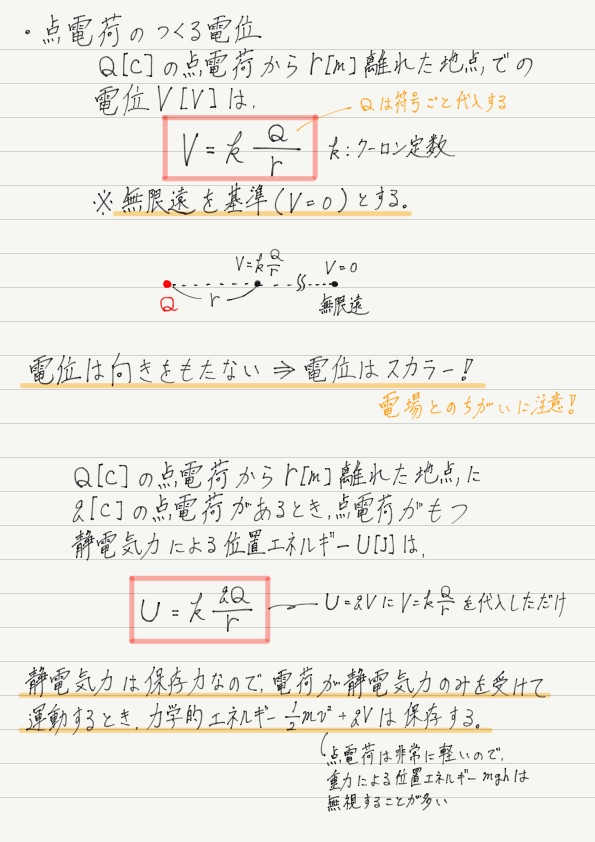 ・点電荷のつくる電位
Q[C]の点電荷からr[m]離れた地点での
電位V[V]は、
Qは符号ごと代入する
V = k Q/r
k:クーロン定数
※無限遠を基準(V=0)とする。
V=k Q/r
V=0
Q
r
無限遠
電位は向きをもたない ⇒ 電位はスカラー!
電場とのちがいに注意!
Q[C]の点電荷からr[m]離れた地点に
q[C]の点電荷があるとき、点電荷がもつ
静電気力による位置エネルギーU[J]は、
U = k qQ/r
U=qVにV=k Q/rを代入しただけ
静電気力は保存力なので、電荷が静電気力のみを受けて
運動するとき、力学的エネルギー 1/2 mv² + qVは保存する。
点電荷は非常に軽いので、
重力による位置エネルギーmghは
無視することが多い